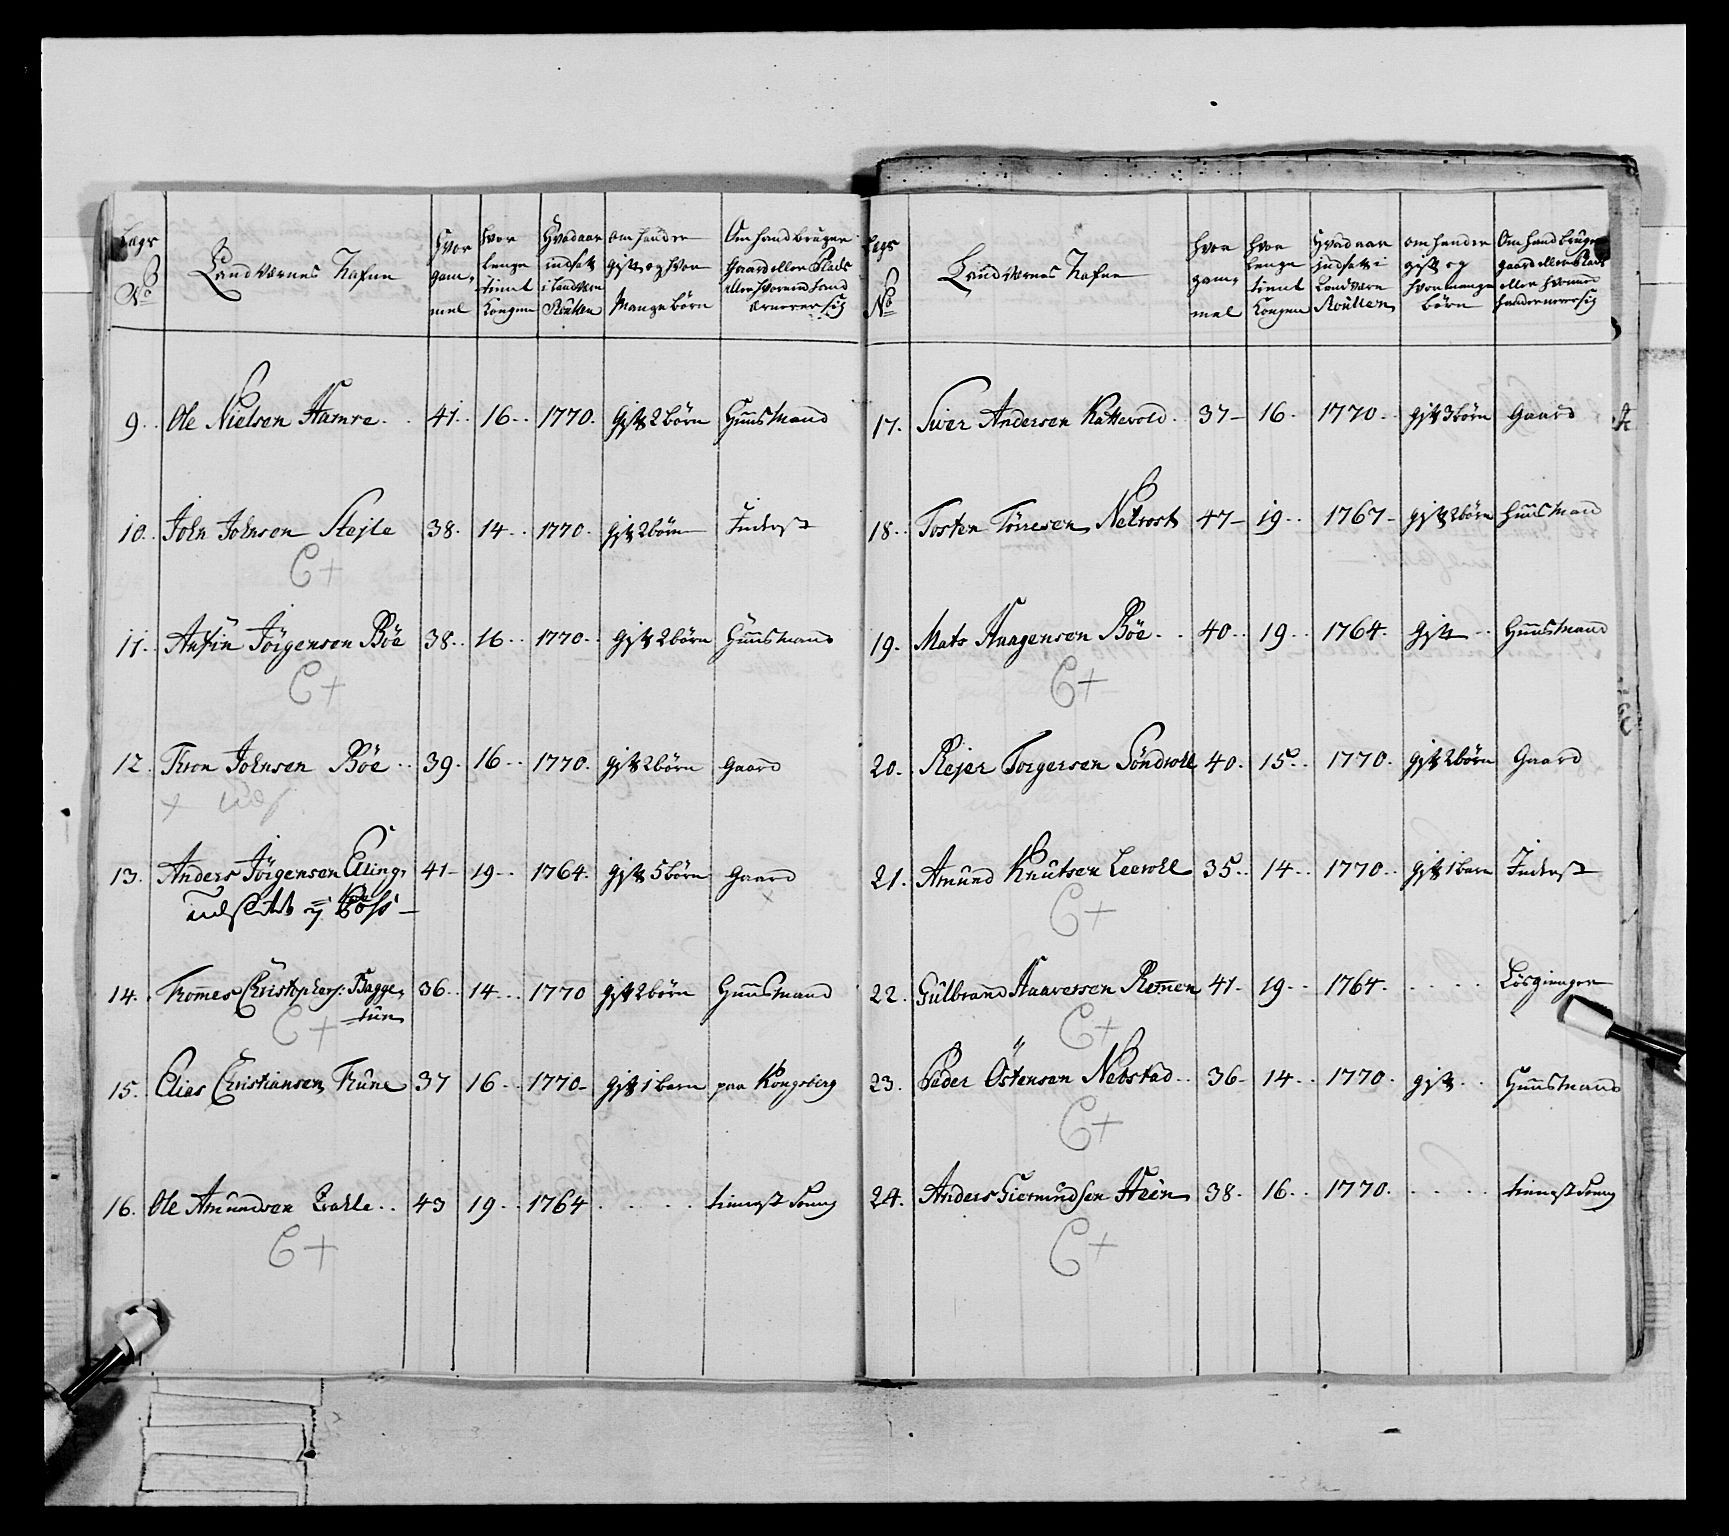 Lægs No
Landværnes Nafne
Hvor gam, mel
Hvor lenge tient Kongen
Hvad aar indsatt i Landværn Roullen
om hand er gift og hvor Mange børn
Om hand bruger Gaard eller Plads eller hvormed hand ernerer sig
9. Ole Nielsen Hamre 41 16 1770 gift 2 børn Huusmand
10. John Johnsen Stejle 38 14 1770 gift 2 børn Inderst
C+
11. Anfin Jörgensen Böe 38 16 1770 gift 2 børn Huusmand
C+
12. Thron Johnsen Böe 39 16 1770 gift 2 børn Gaard
+
13. Anders Jörgensen Eling, 41 19 1764 gift 5 børn Gaard
14. Thomes Christophers: Bagge, 36 14 1770 gift 2 børn Huusmand
C+ tün
15. Elias Christiansen Thüne 37 16 1770 gift 1 barn paa Kongsberg
16. Ole Amündsen 43 19 1764 tienest Karl
C+
Lægs No
Landværnes Nafne
hvor gam, mel
hvor lenge tient Kongen
Hvad aar indsatt i Landværn Roullen
om hand er gift og hvor mange børn
Om hand bruger gaard eller Plads eller hvormed hand ernerer sig
17. Siver Andersen Kattevold 37 16 1770 gift 3 børn Gaard
18. Tosten Tórresen 47 19 1767 gift 2 børn Huusmand
19. Mats Haagensen Böe 40 19 1764 gift Huusmand
C+
20. Rejer Torgersen Söndroll 40 15 1770 gift 2 børn Gaard
21. Amünd Knütsen Leeroll 35 14 1770 gift 1 barn Inderst
C+
22. Gülbrand Haavorsen Remen 41 19 1764 Lösgienger
C+
23. Peder Östensen Nebstad 36 14 1770 gift Huusmand
C+
24. Anders Giermundsen Hein 38 16 1770
C+